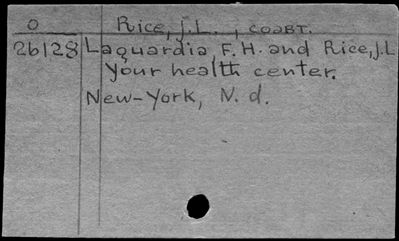 O Rice, J.L., соавт.
26128 Laguardia F.H. and Rice, J.L
Your health center.
New-York, N.d.